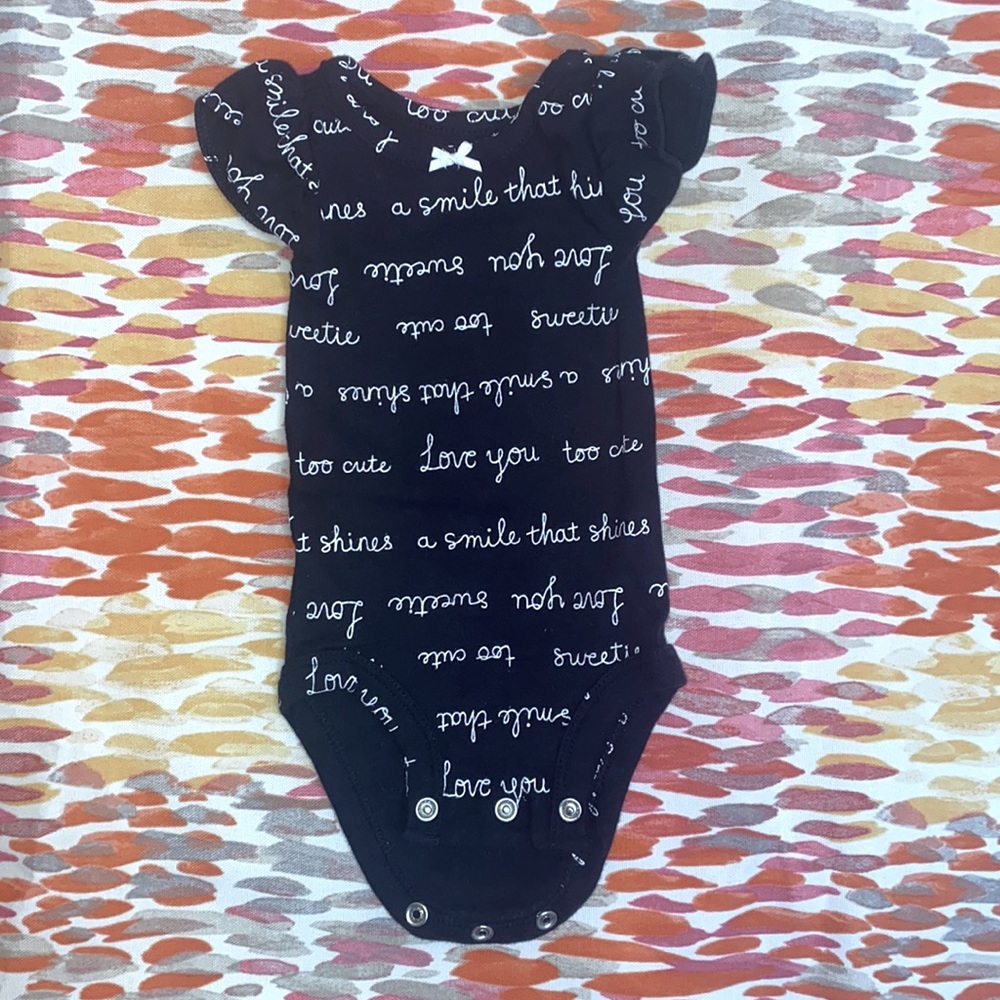 too cute
cute
a smile that
you
a smile that
Love you sweetie Love
sweetie too cute
a smile that shines a
too cute Love you too cute
shines a smile that shines
Love you sweetie Love
too cute
Love you
smile that
Love you